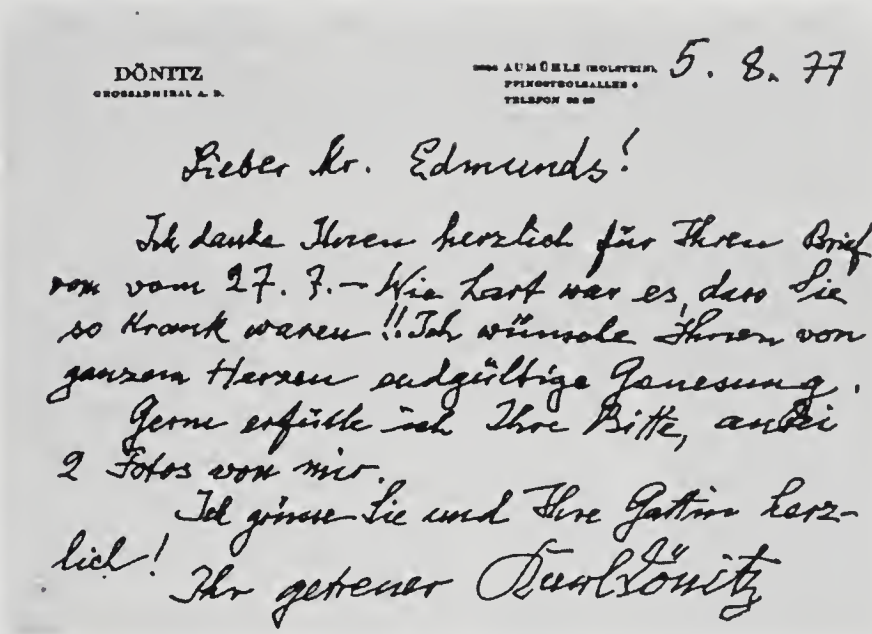 DÖNITZ
GROSSADMIRAL A. D.
AUMÜHLE (HOLSTEIN),
PFINGSTHOLZALLEE 4
TELEFON
5. 8. 77
Lieber Mr. Edmunds!
Ich danke Ihnen herzlich für Ihren Brief
vom vom 27. 7. – Wie hart war es, dass Sie
so krank waren!! Ich wünsche Ihnen von
ganzem Herzen endgültige Genesung.
Gerne erfülle ich Ihre Bitte, anbei
2 Fotos von mir.
Ich grüsse Sie und Ihre Gattin herz-
lich!
Ihr getreuer Karl Dönitz